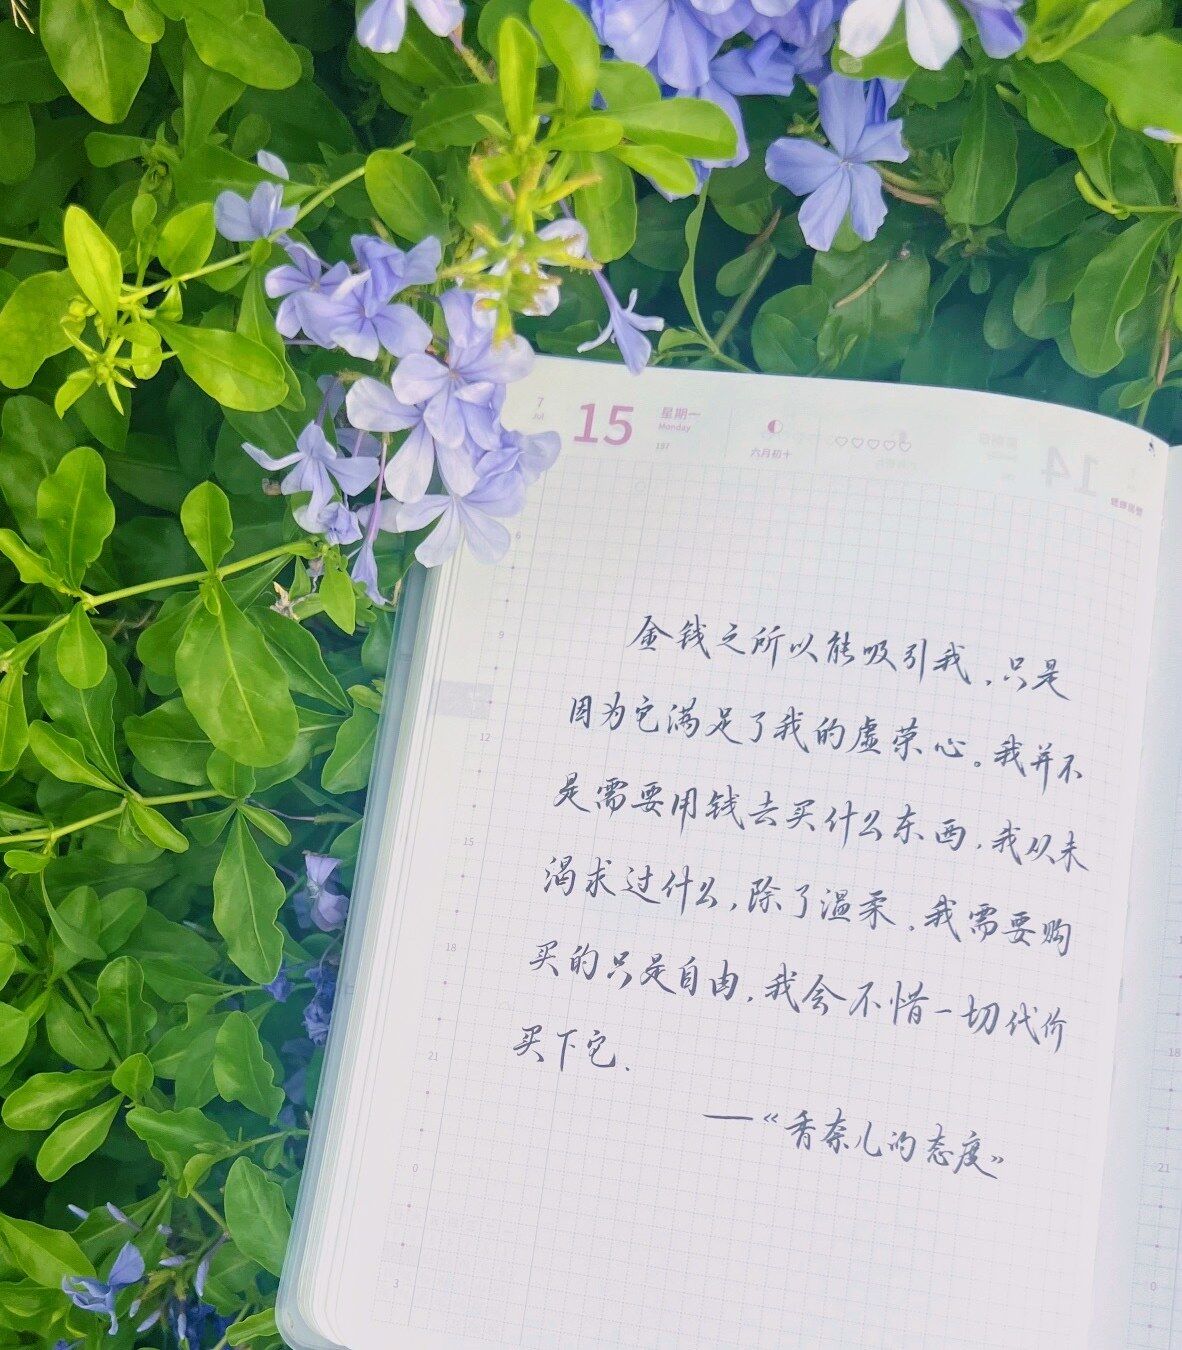 7
Jul
15
星期一
Monday
197
六月初十
6
金钱之所以能吸引我，只是
9
因为它满足了我的虚荣心。我并不
12
是需要用钱去买什么东西，我从未
15
渴求过什么，除了温柔，我需要购
18
买的只是自由，我会不惜一切代价
21
买下它．
——《香奈儿的态度》
0
3
18
21
0